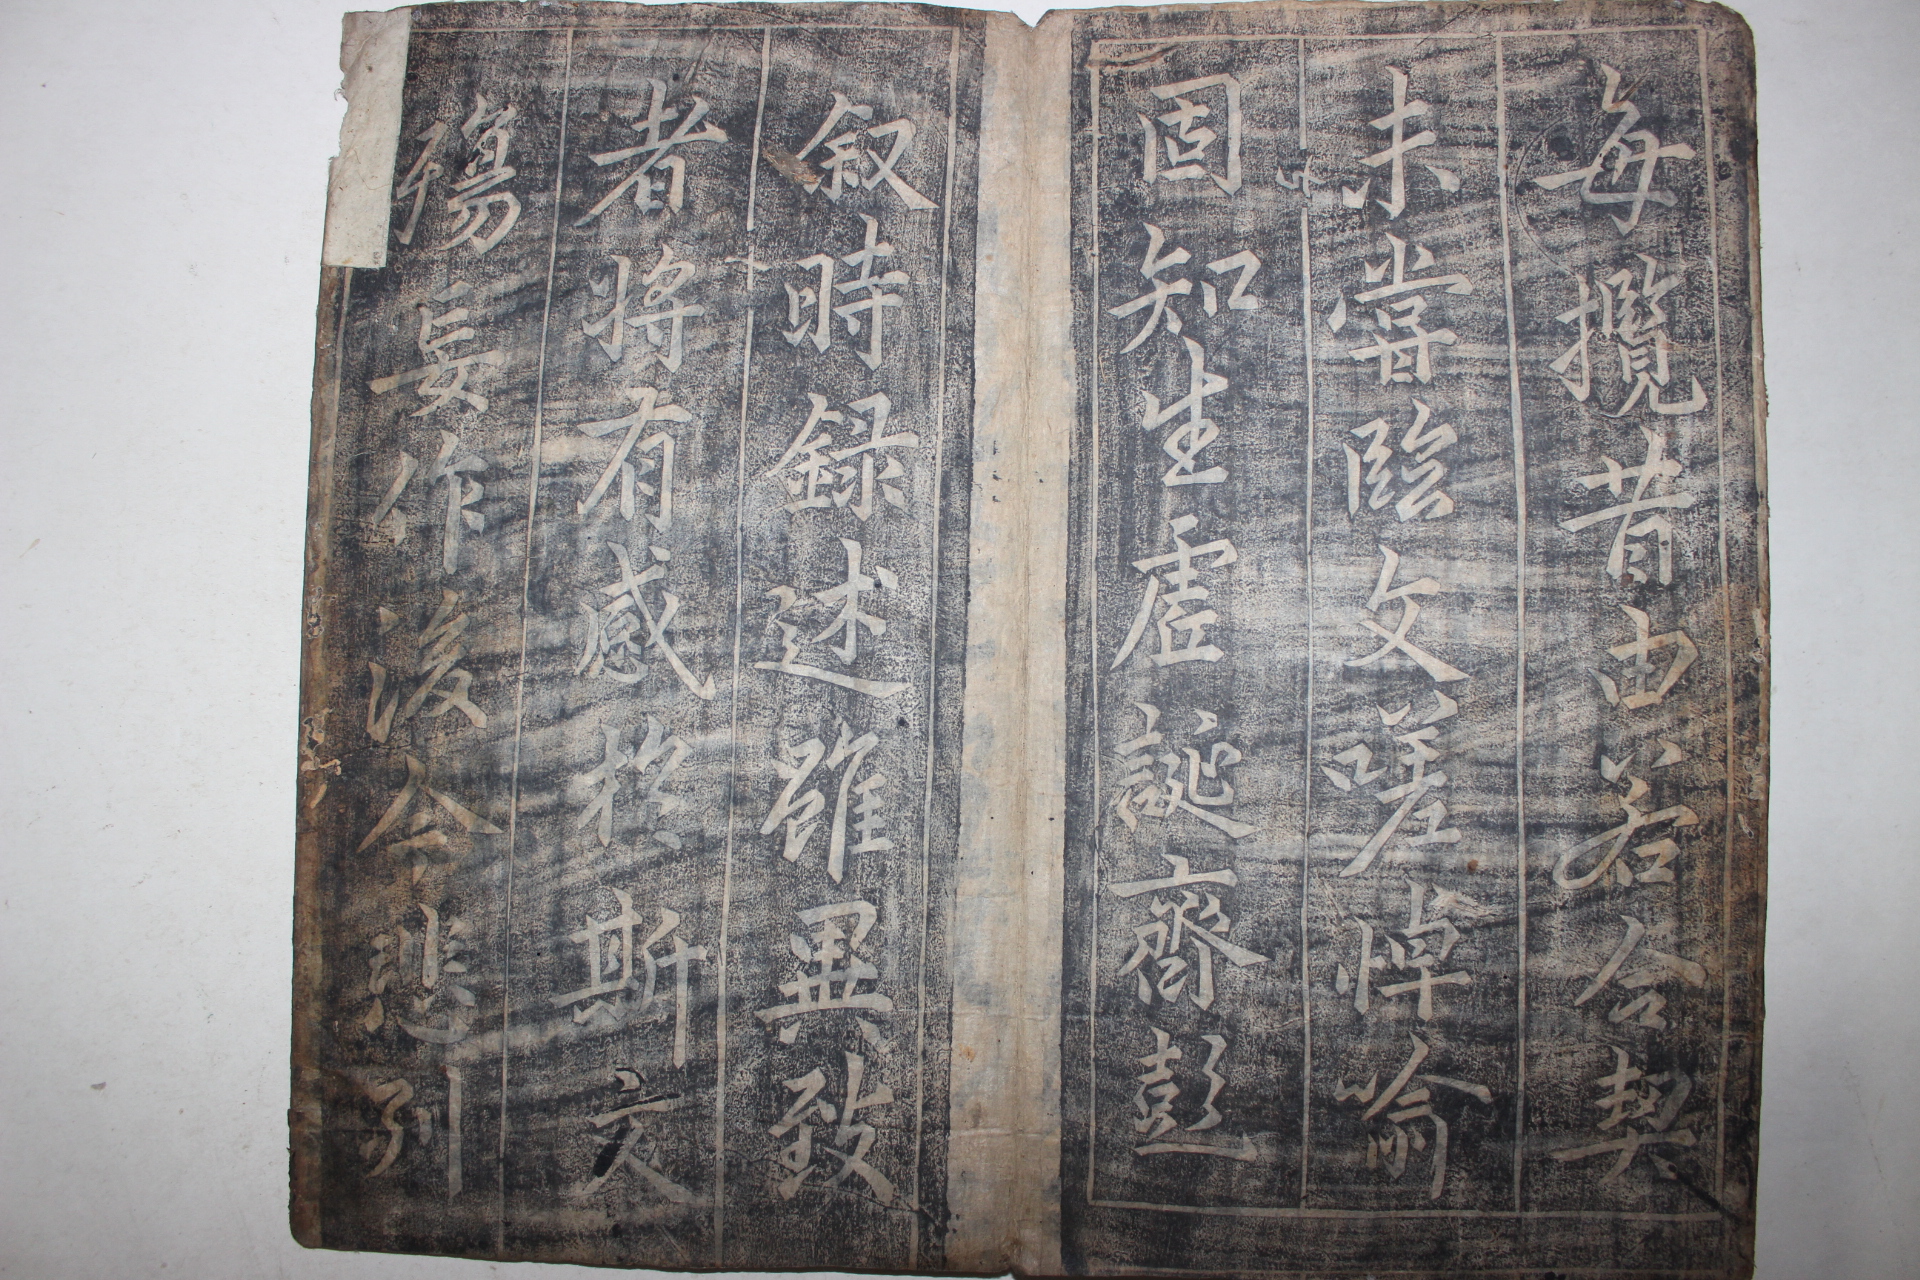 每攬昔由若合契
未甞臨文嗟悼喻
固知生虛誕齊彭
叙時録述雖異致
者將有感扵斯文
殤妄作後今悲列